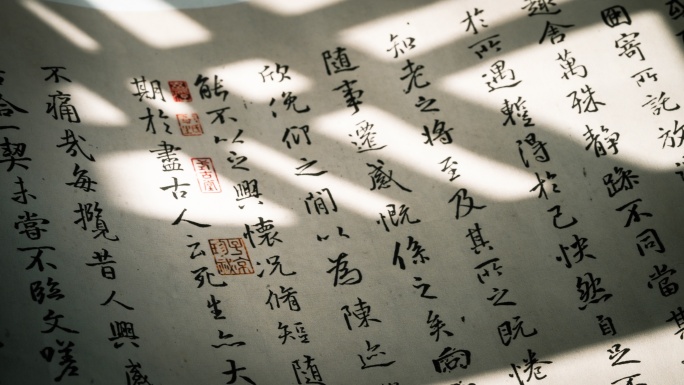 因寄所託放
趣舍萬殊静躁不同當其
於所遇蹔得於己怏然自足不
知老之將至及其所之既惓
随事遷感慨係之矣向
欣俛仰之閒以為陳迹
能不以之興懷況脩短随
期於盡古人云死生亦大
不痛哉每攬昔人興感
合一契未嘗不臨文嗟